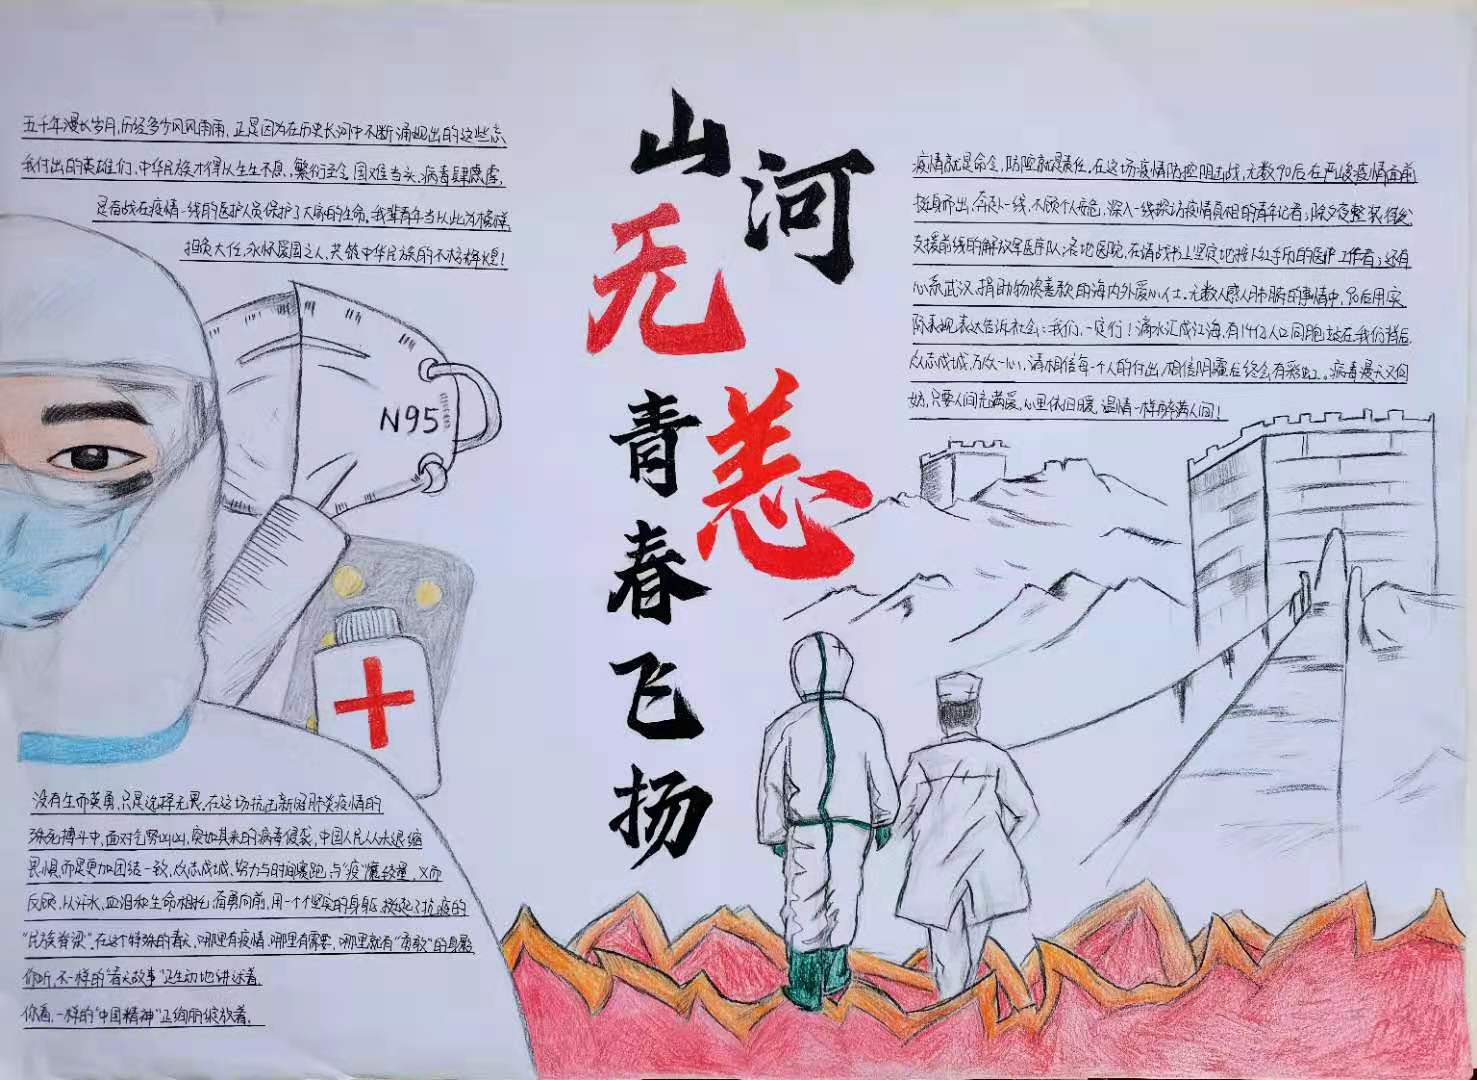 五千年漫长岁月,历经多少风风雨雨,正是因为在历史长河中不断涌现出的这些忘
我付出的英雄们,中华民族才得以生生不息,繁衍至今.国难当头,病毒肆虐,
是奋战在疫情一线的医护人员保护了大家的生命.我辈青年当以此为榜样,
担负大任,永怀爱国之心,共铸中华民族的不朽辉煌!
山河
无恙
青春飞扬
N95
疫情就是命令,防控就是责任。在这场疫情防控阻击战,无数90后在严峻疫情面前
挺身而出,奔赴一线,不顾个人安危,深入一线探访疫情真相的青年记者;除夕夜整装待发
支援前线的解放军医疗队;各地医院,在请战书上坚定地按下红手印的医护工作者;还有
心系武汉,捐助物资善款的海内外爱心人士。无数人感人肺腑的事情中,90后用实
际表现表达告诉社会:我们,一定行!滴水汇成江海,有14亿人口同胞站在我们背后,
众志成城,万众一心,请相信每一个人的付出,相信阴霾后终会有彩虹。病毒漫天又何
妨,只要人间充满爱,心里依旧暖,温情一样弥满人间!
没有生而英勇,只是选择无畏.在这场抗击新冠肺炎疫情的
殊死搏斗中,面对气势汹汹,突如其来的病毒侵袭,中国人民从未退缩
畏惧,而是更加团结一致,众志成城,努力与时间赛跑,与"疫"魔较量,义无
反顾,以汗水,血泪和生命相托,奋勇向前,用一个个坚实的身躯,挺起了抗疫的
"民族脊梁",在这个特殊的春天,哪里有疫情,哪里有需要,哪里就有"勇敢"的身影
你听,不一样的"春天故事"正生动地讲述着.
你看,一样的"中国精神"正绚丽绽放着.